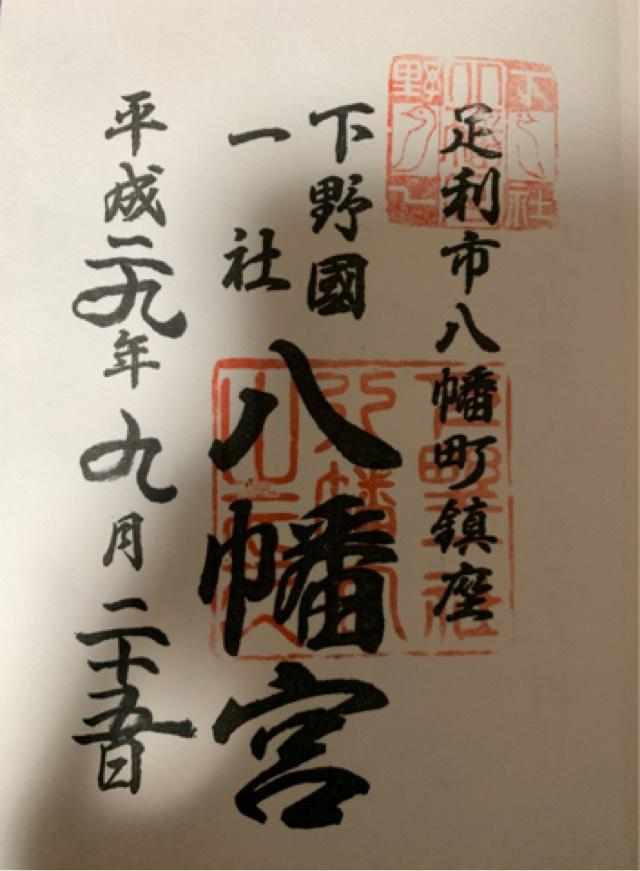 足利市八幡町鎮座
下野國
一社
八幡宮
平成二九年九月二十五日